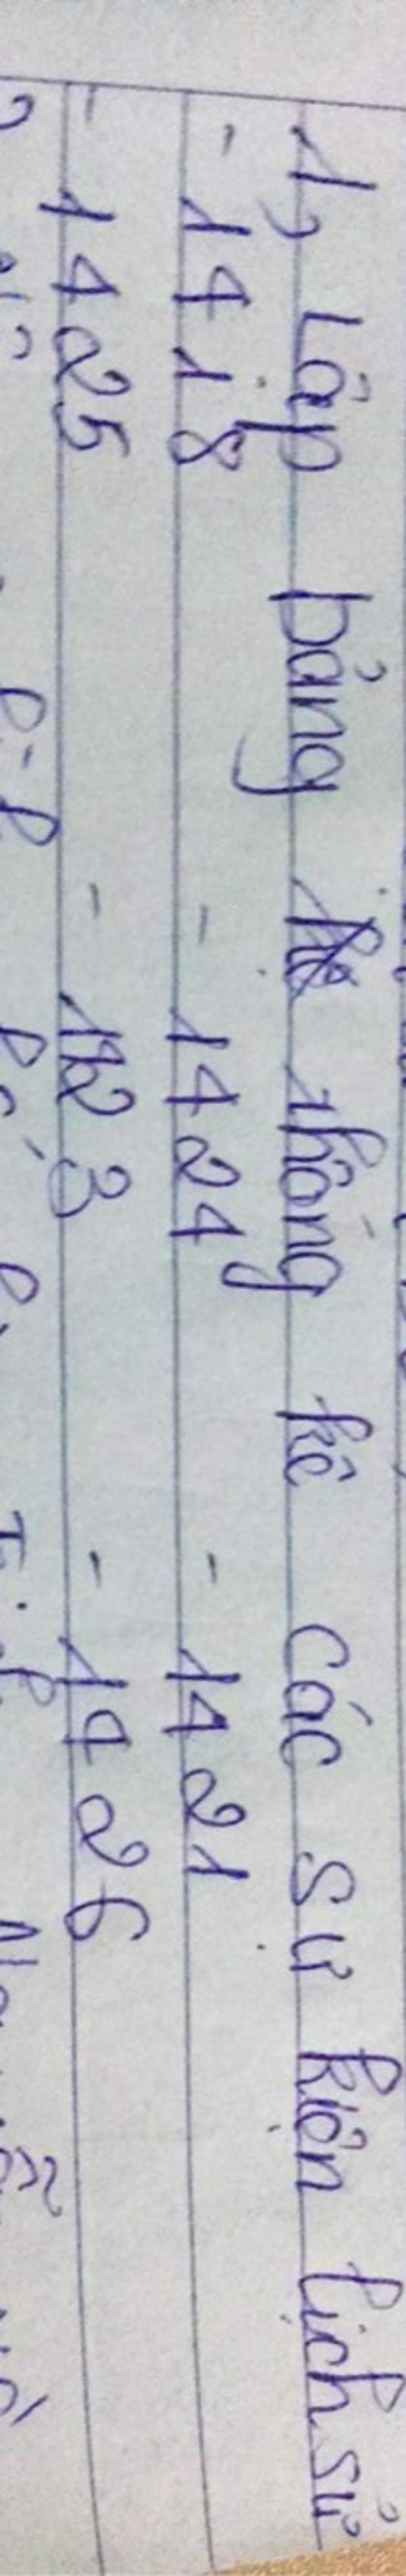 1, Lập bảng thống kê các sự kiện lịch sử
- 1418 - 1424 - 1421
- 1425 - 1423 - 1426